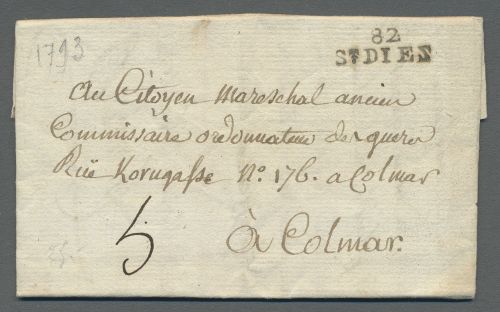 1793
82
ST DIEZ
Au Citoyen Mareschal ancien
Commissaire ordonnateur des guerres
Ruë Korngasse No. 176. a Colmar
5
à Colmar.